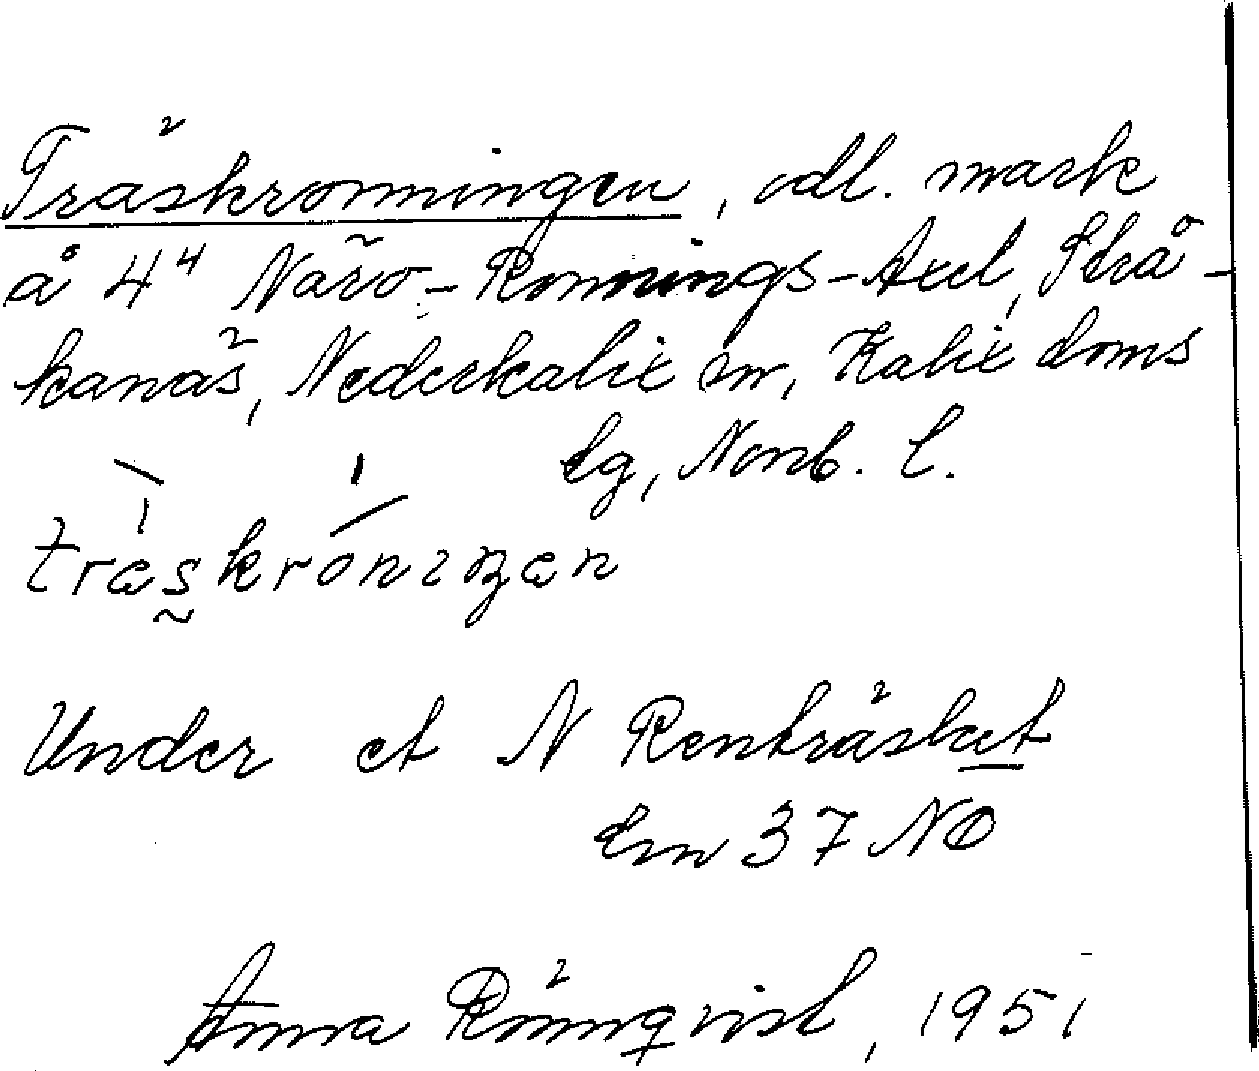 Träskronningen, odl. mark
å 4⁴ Närö-Ronnings-Axel, Strå-
kanäs, Nederkalix sn, Kalix doms
lg, Norrb. l.
träskrónıŋen
Under et N Renträsket
Em 37 NO
Anna Rönnqvist, 1951